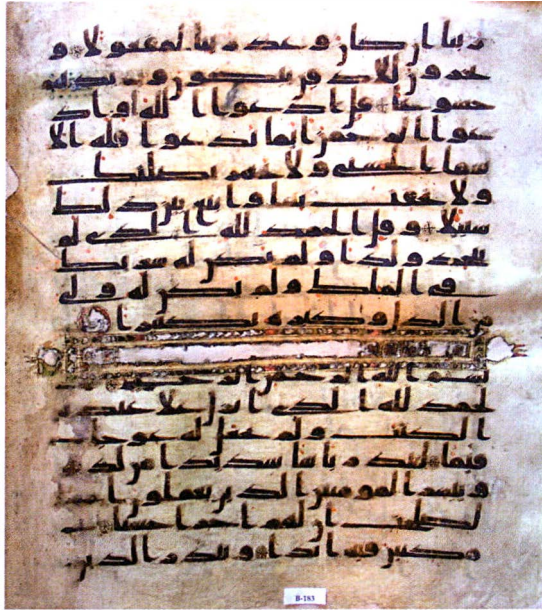 ربنا ان كان وعد ربنا لمفعولا و
يخرون للاذقن يبكون ويزيدهم
خشوعا قل ادعوا الله او اد
عوا الرحمن ايما تدعوا فله الا
سما الحسنى ولا تجهر بصلتك
ولا تخفت بها وابتغ بين ذلك
سبيلا وقل الحمد لله الذي لم
يتخذ ولدا ولم يكن له شريك
في الملك ولم يكن له ولي
من الذل وكبره تكبيرا
بسم الله الرحمن الرحيم ا
لحمد لله الذي انزل على عبده
الكتب ولم يجعل له عوجا
قيما لينذر باسا شديدا من لدنه
ويبشر المومنين الذين يعملون ا
لصلحت ان لهم اجرا حسنا
مكثين فيه ابدا وينذر الذين
B-183